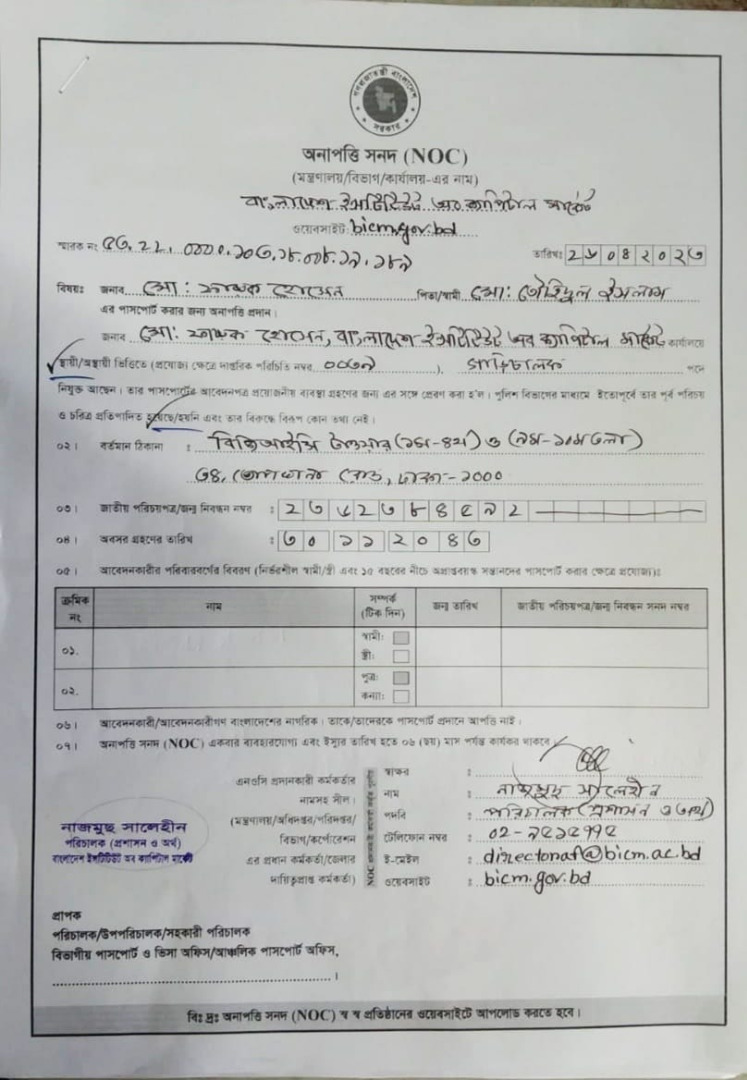 গণপ্রজাতন্ত্রী বাংলাদেশ
সরকার
অনাপত্তি সনদ (NOC)
(মন্ত্রণালয়/বিভাগ/কার্যালয়-এর নাম)
বাংলাদেশ ইন্সটিটিউট অব ক্যাপিটাল মার্কেট
ওয়েবসাইট: bicm.gov.bd
স্মারক নং
তারিখ: ২৬০৪২০২৩
বিষয়ঃ জনাব মো: ফারুক হোসেন পিতা/স্বামী মো: তৌহিদুল ইসলাম
এর পাসপোর্ট করার জন্য অনাপত্তি প্রদান।
জনাব মো: ফারুক হোসেন, বাংলাদেশ ইন্সটিটিউট অব ক্যাপিটাল মার্কেট কার্যালয়ে
স্থায়ী/অস্থায়ী ভিত্তিতে (প্রযোজ্য ক্ষেত্রে দাপ্তরিক পরিচিতি নম্বর ০০৭৯ ) গাড়িচালক পদে
নিযুক্ত আছেন। তার পাসপোর্টের আবেদনপত্র প্রয়োজনীয় ব্যবস্থা গ্রহণের জন্য এর সঙ্গে প্রেরণ করা হ'ল। পুলিশ বিভাগের মাধ্যমে ইতোপূর্বে তার পূর্ব পরিচয়
ও চরিত্র প্রতিপাদিত হয়েছে/হয়নি এবং তার বিরুদ্ধে বিরূপ কোন তথ্য নেই।
০২। বর্তমান ঠিকানা : বিজিআইসি টাওয়ার (১ম-৪র্থ) ও (৯ম-১০ম তলা)
৩৪, তোপখানা রোড, ঢাকা-১০০০
০৩। জাতীয় পরিচয়পত্র/জন্ম নিবন্ধন নম্বর :
০৪। অবসর গ্রহণের তারিখ : ৩০১১২০৪৩
০৫। আবেদনকারীর পরিবারবর্গের বিবরণ (নির্ভরশীল স্বামী/স্ত্রী এবং ১৫ বছরের নীচে অপ্রাপ্তবয়স্ক সন্তানদের পাসপোর্ট করার ক্ষেত্রে প্রযোজ্য)ঃ
ক্রমিক নং নাম সম্পর্ক (টিক দিন) জন্ম তারিখ জাতীয় পরিচয়পত্র/জন্ম নিবন্ধন সনদ নম্বর
০১. স্বামী:
স্ত্রী:
০২. পুত্র:
কন্যা:
০৬। আবেদনকারী/আবেদনকারীগণ বাংলাদেশের নাগরিক। তাকে/তাদেরকে পাসপোর্ট প্রদানে আপত্তি নাই।
০৭। অনাপত্তি সনদ (NOC) একবার ব্যবহারযোগ্য এবং ইস্যুর তারিখ হতে ০৬ (ছয়) মাস পর্যন্ত কার্যকর থাকবে
এনওসি প্রদানকারী কর্মকর্তার
নামসহ সীল।
(মন্ত্রণালয়/অধিদপ্তর/পরিদপ্তর/
বিভাগ/কর্পোরেশন
এর প্রধান কর্মকর্তা/জেলার
দায়িত্বপ্রাপ্ত কর্মকর্তা)
স্বাক্ষর :
নাম : নাজমুছ সালেহীন
পদবি : পরিচালক (প্রশাসন ও অর্থ)
টেলিফোন নম্বর :
ই-মেইল : directoraf@bicm.ac.bd
ওয়েবসাইট : bicm.gov.bd
নাজমুছ সালেহীন
পরিচালক (প্রশাসন ও অর্থ)
বাংলাদেশ ইনস্টিটিউট অব ক্যাপিটাল মার্কেট
প্রাপক
পরিচালক/উপপরিচালক/সহকারী পরিচালক
বিভাগীয় পাসপোর্ট ও ভিসা অফিস/আঞ্চলিক পাসপোর্ট অফিস,
বিঃ দ্রঃ অনাপত্তি সনদ (NOC) স্ব স্ব প্রতিষ্ঠানের ওয়েবসাইটে আপলোড করতে হবে।